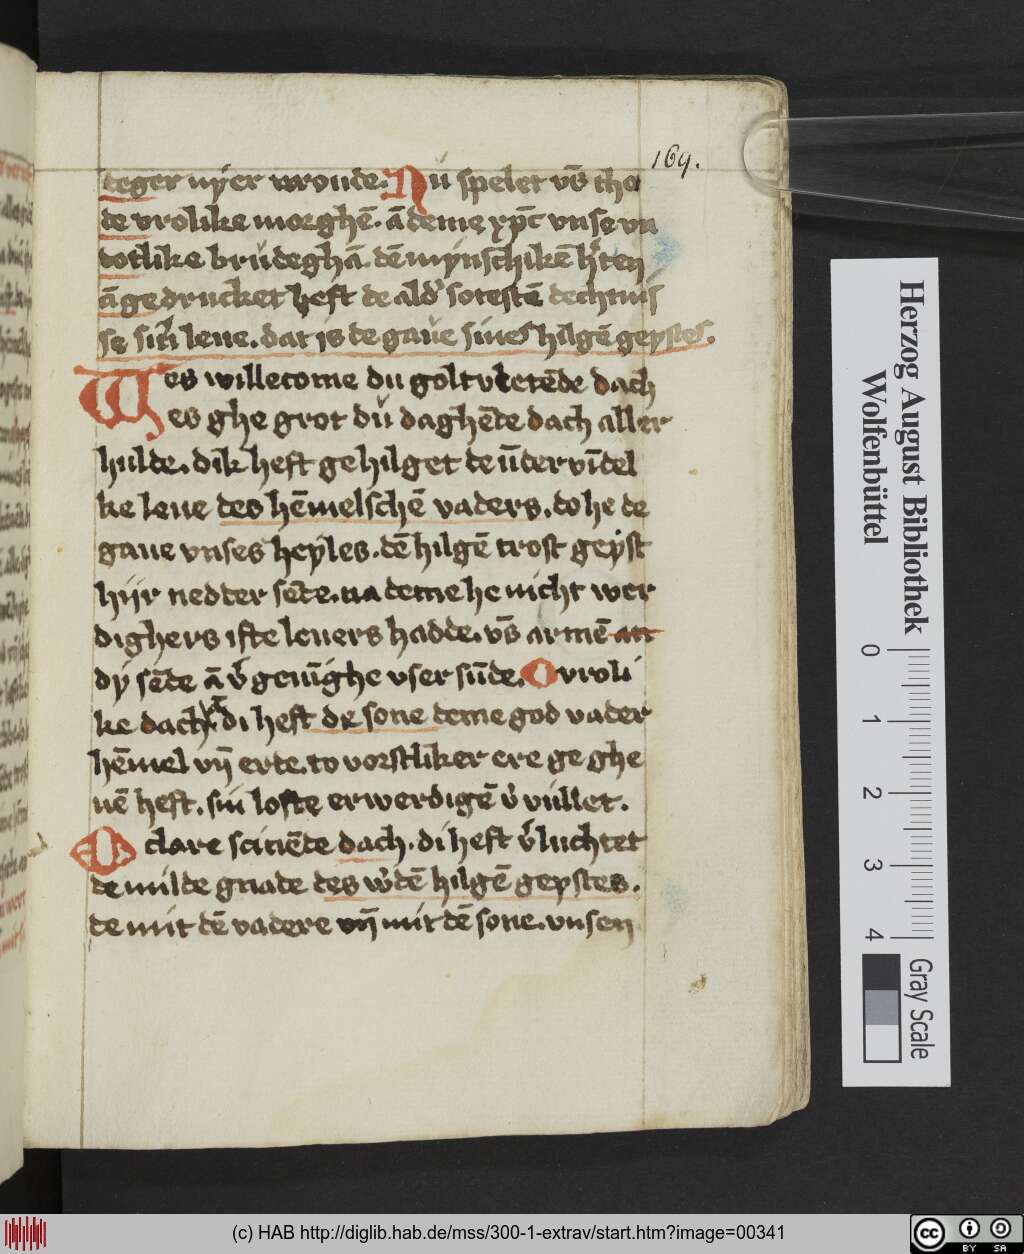 169.
teger nyer vroude. Nu spelet vns tho
de vrolike morghē. ā deme xpc̄ vnse vn
totlike brüdeghā. dē mynschikē hten
āgedrucket heft de ald' sotestē dechtnis
se sin leue. dat is de gaue sines hilgē geystes.
Wes willecome du golt vletēde dach
es ghe grot dü daghēde dach aller
hulde. dik heft ge hilget de ūder vīdel
ke leue des hēmelschē vaders. do he de
gaue vnses heyles. dē hilgē trost geyst
hijr nedder sēde. na deme he nicht wer
dighers ifte leuers hadde. vs̄ armē an
dy sēde ā v'genūghe vser sūde. O vroli
ke dach di heft de sone deme god vader
hēmel vn̄ erte. to vorstliker ere ge ghe
uē heft. sin lofte erwerdigē v'vüllet.
O clare scinēde dach. di heft v'luchtet
de milde gnade des w'dē hilgē geystes.
de mit dē vadere vn̄ mit dē sone. vnsen
Herzog August Bibliothek
Wolfenbüttel
0 1 2 3 4
Gray Scale
(c) HAB http://diglib.hab.de/mss/300-1-extrav/start.htm?image=00341
cc BY SA